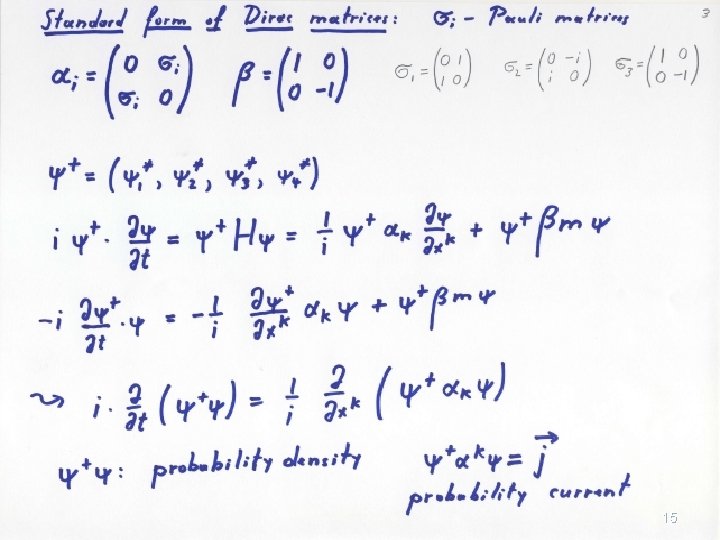 Standard form of Dirac matrices: σᵢ - Pauli matrices 3
αᵢ = (0 σᵢ; σᵢ 0) β = (1 0; 0 -1) σ₁ = (0 1; 1 0) σ₂ = (0 -i; i 0) σ₃ = (1 0; 0 -1)
ψ⁺ = (ψ₁*, ψ₂*, ψ₃*, ψ₄*)
i ψ⁺· ∂ψ/∂t = ψ⁺Hψ = 1/i ψ⁺ αₖ ∂ψ/∂xᵏ + ψ⁺βmψ
-i ∂ψ⁺/∂t ·ψ = -1/i ∂ψ⁺/∂xᵏ αₖψ + ψ⁺βmψ
⇝ i· ∂/∂t (ψ⁺ψ) = 1/i ∂/∂xᵏ (ψ⁺αₖψ)
ψ⁺ψ: probability density ψ⁺αᵏψ = j⃗
probability current
15